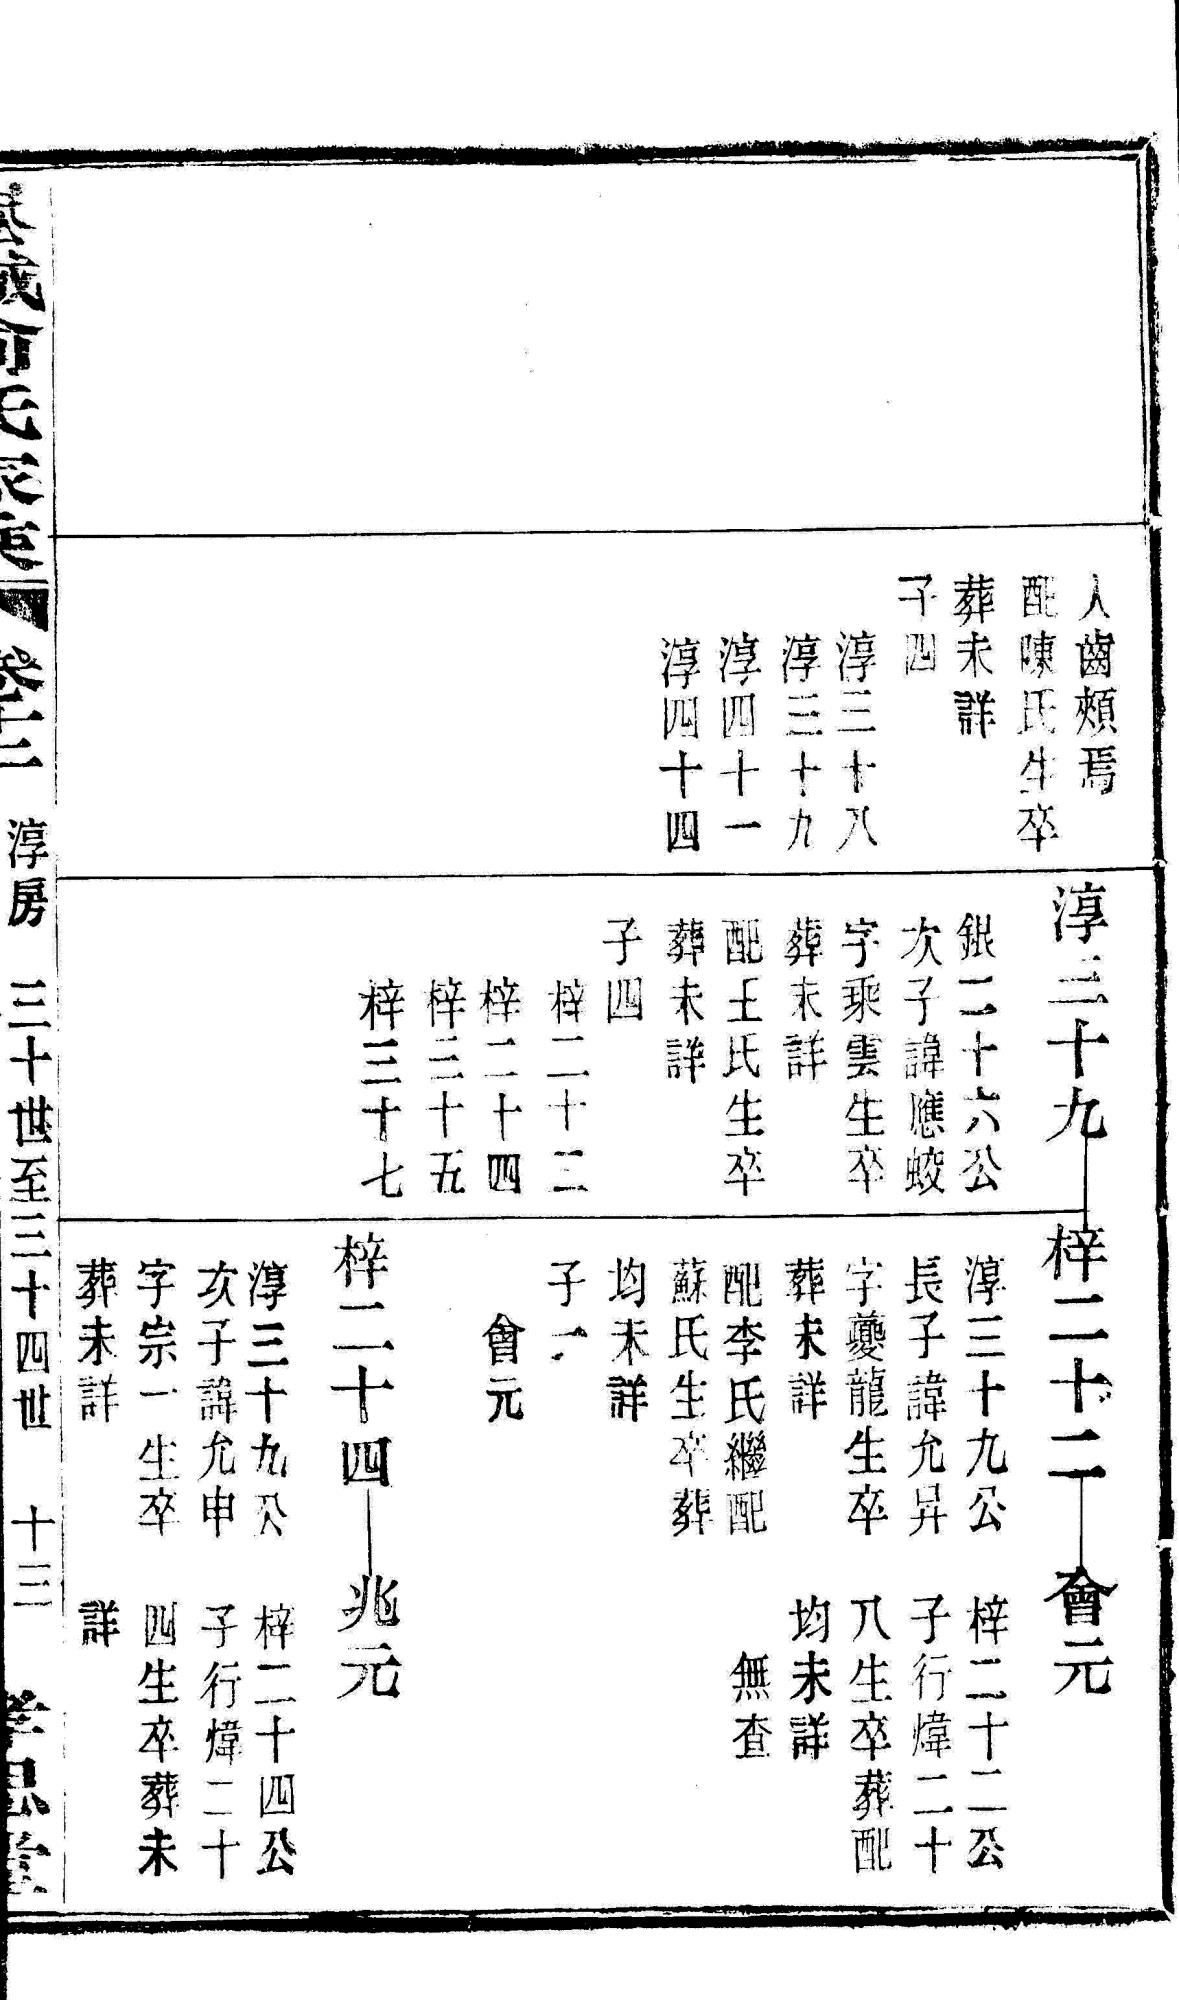 人齒頰焉
配陳氏生卒
葬未詳
子四
淳三十八
淳三十九
淳四十一
淳四十四
淳三十九
銀二十六公
次子諱應蛟
字乘雲生卒
葬未詳
配王氏生卒
葬未詳
子四
梓二十二
梓二十四
梓三十五
梓三十七
梓二十二
淳三十九公
長子諱允昇
字夔龍生卒
葬未詳
配李氏繼配
蘇氏生卒葬
均未詳
子一
會元
會元
梓二十二公
子行煒二十
八生卒葬配
均未詳
無查
梓二十四
淳三十九公
次子諱允申
字宗一生卒
葬未詳
兆元
梓二十四公
子行煒二十
四生卒葬未
詳
氏家乘 卷十二 淳房 三十世至三十四世 十三 孝思堂